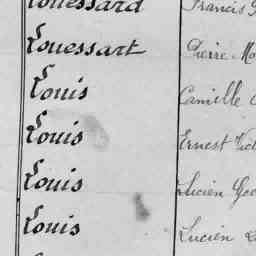 Louessard Francis
Louessart Pierre
Louis Camille
Louis Ernest
Louis Lucien
Louis Lucien